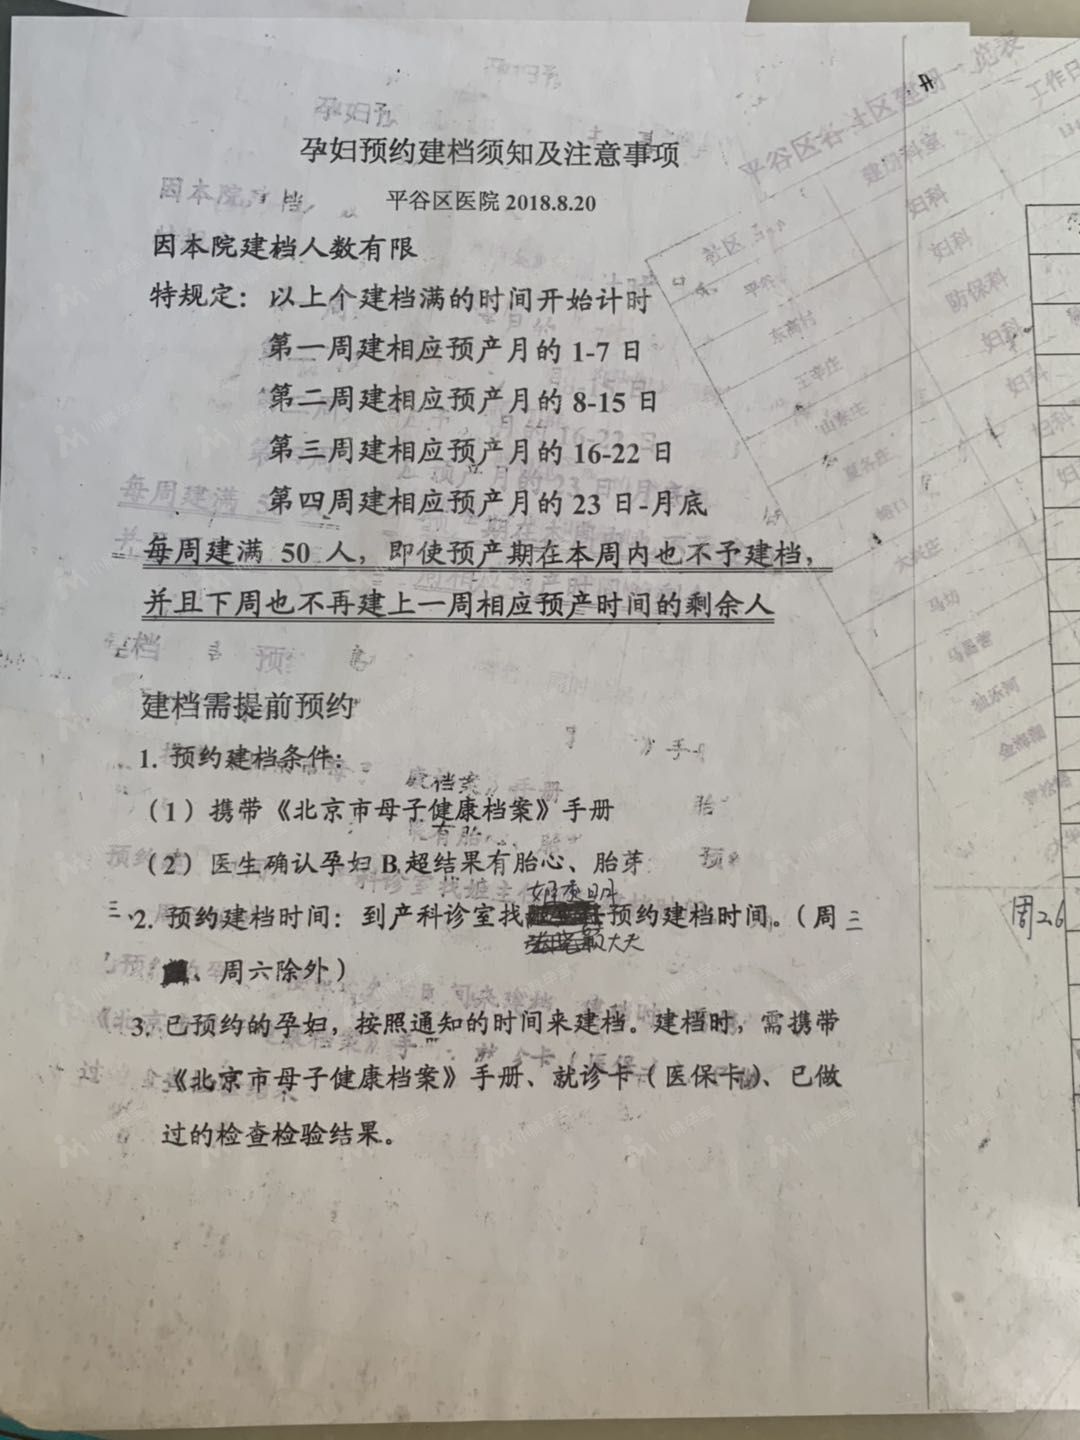 孕妇预约建档须知及注意事项
平谷区医院 2018.8.20
因本院建档人数有限
特规定：以上个建档满的时间开始计时
第一周建相应预产月的 1-7 日
第二周建相应预产月的 8-15 日
第三周建相应预产月的 16-22 日
第四周建相应预产月的 23 日-月底
每周建满 50 人，即使预产期在本周内也不予建档，
并且下周也不再建上一周相应预产时间的剩余人
建档需提前预约
1. 预约建档条件：
（1）携带《北京市母子健康档案》手册
（2）医生确认孕妇 B 超结果有胎心、胎芽
2. 预约建档时间：到产科诊室找 预约建档时间。（周三
、周六除外）
3. 已预约的孕妇，按照通知的时间来建档。建档时，需携带
《北京市母子健康档案》手册、就诊卡（医保卡）、已做
过的检查检验结果。
工作日
建册科室
社区
妇科
平谷
妇科
东高村
防保科
王辛庄
妇科
山东庄
妇科
夏各庄
妇科
峪口
大兴庄
马坊
马昌营
金海湖
周26